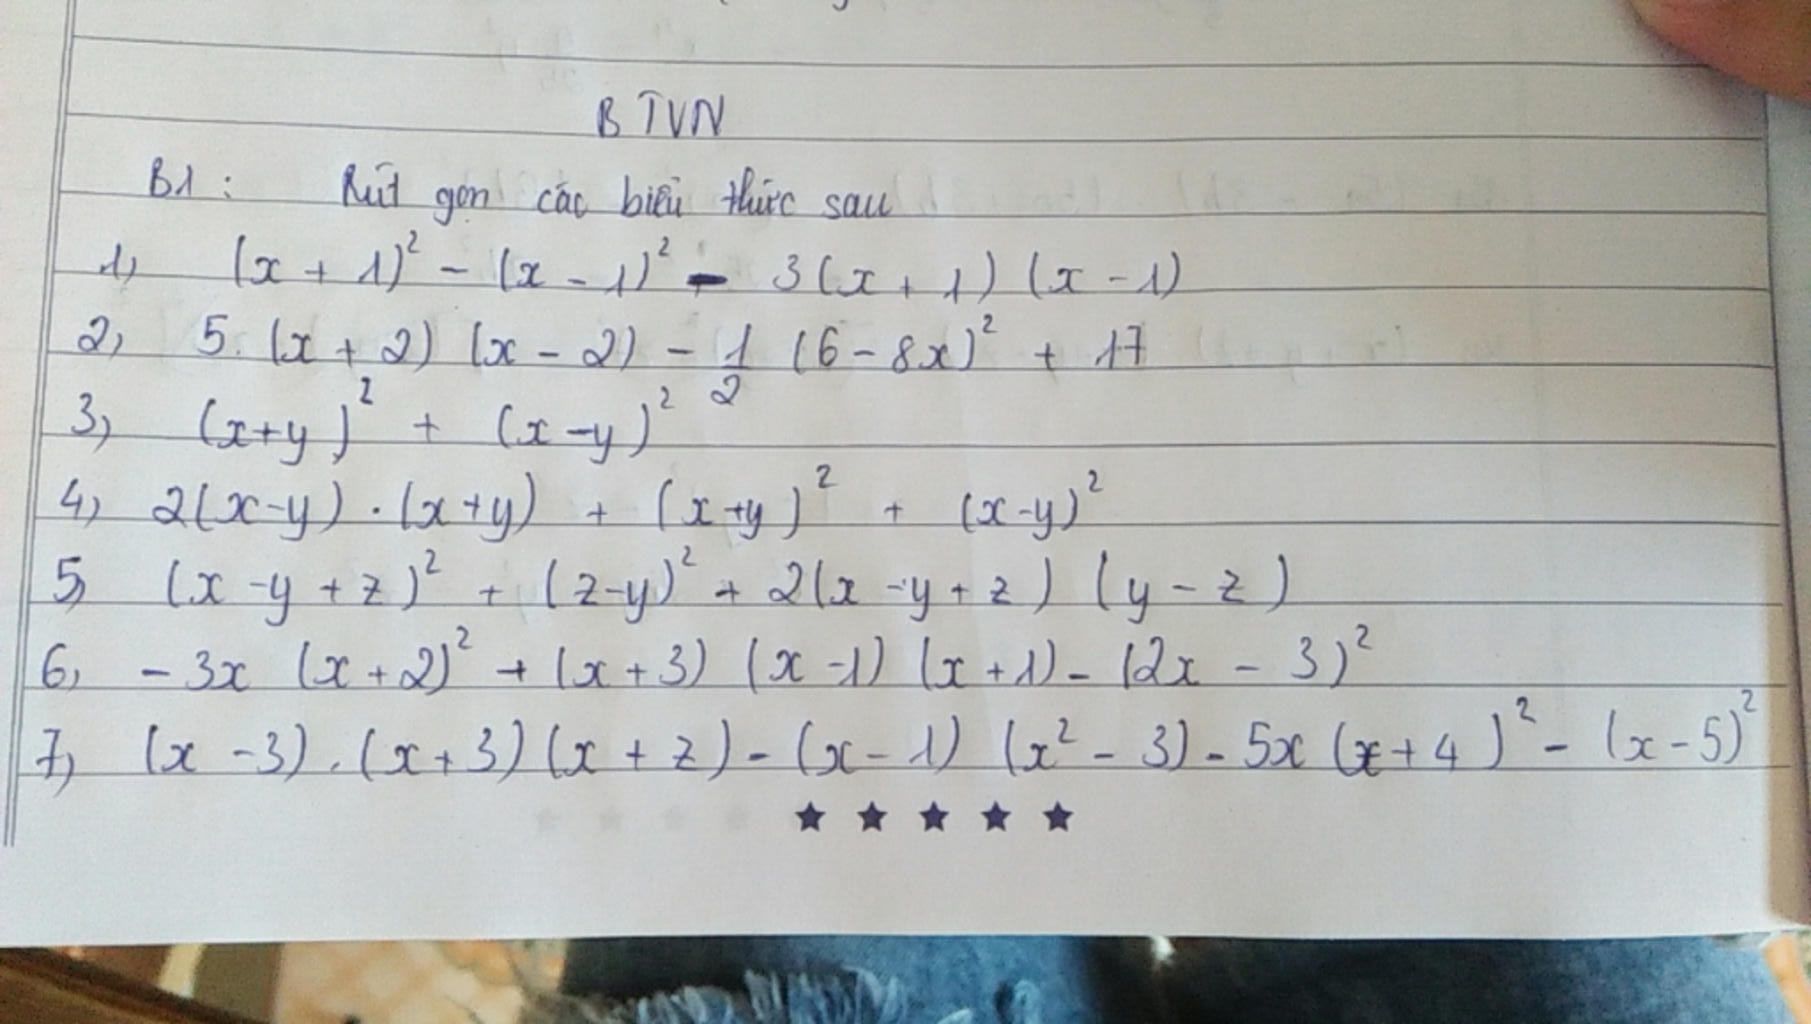 BTVN
B1: Rút gọn các biểu thức sau
1, (x + 1)² - (x - 1)² - 3(x + 1) (x - 1)
2, 5. (x + 2) (x - 2) - 1/2 (6 - 8x)² + 17
3, (x+y)² + (x-y)²
4, 2(x-y) . (x+y) + (x+y)² + (x-y)²
5, (x -y + z)² + (z-y)² + 2(x -y + z) (y - z)
6, - 3x (x+2)² + (x+3) (x -1) (x+1) - (2x - 3)²
7, (x -3) . (x+3) (x + z) - (x - 1) (x² - 3) - 5x (x+4)² - (x-5)²
★ ★ ★ ★ ★